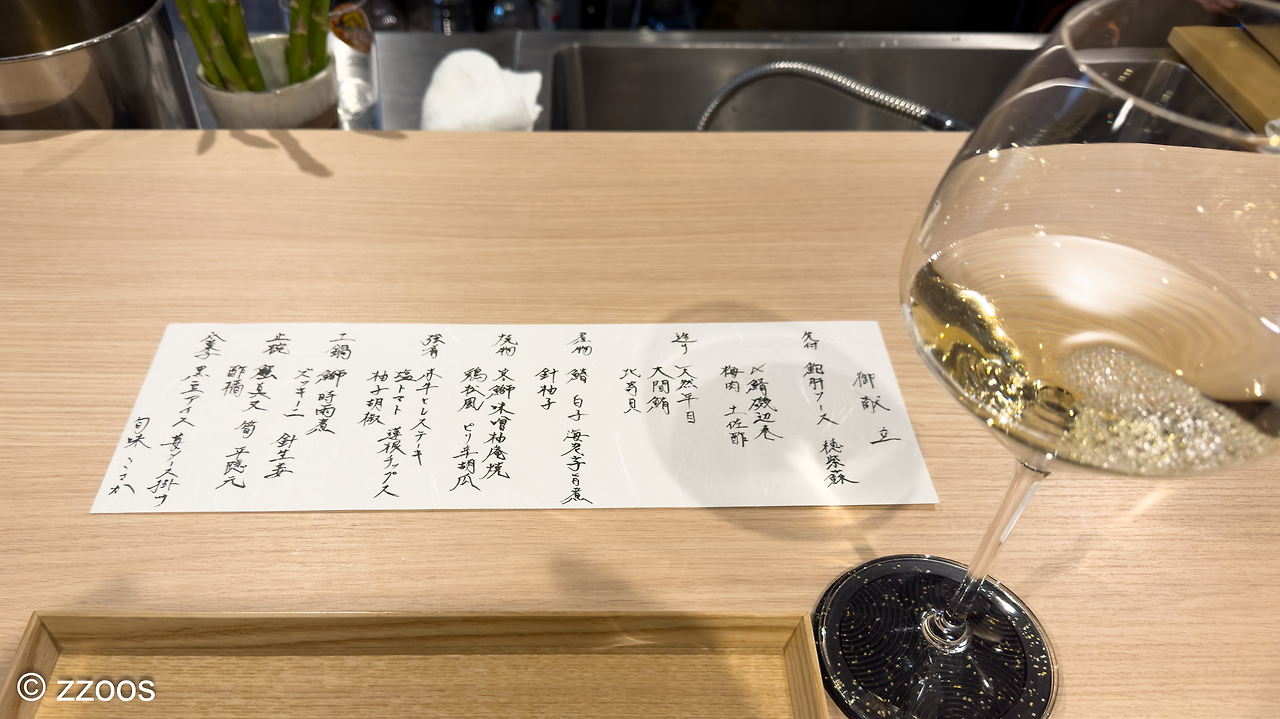 御献立
先付 鮑肝ソース 穂紫蘇
〆鯖磯辺巻
梅肉 土佐酢
造り 天然平目
大間鮪
北寄貝
煮物 鯖 白子 海老芋旨煮
針柚子
焼物 寒鰤味噌柚庵焼
鶏松風 ピリ辛胡瓜
強肴 赤牛ヒレステーキ
塩トマト 蓮根チップス
柚子胡椒
土鍋 鰤時雨煮
ズッキーニ 針生姜
止椀 真丈 筍 平隠元
酢橘
水菓子 黒豆アイス 苺ソース掛け
旬味
© zzoos